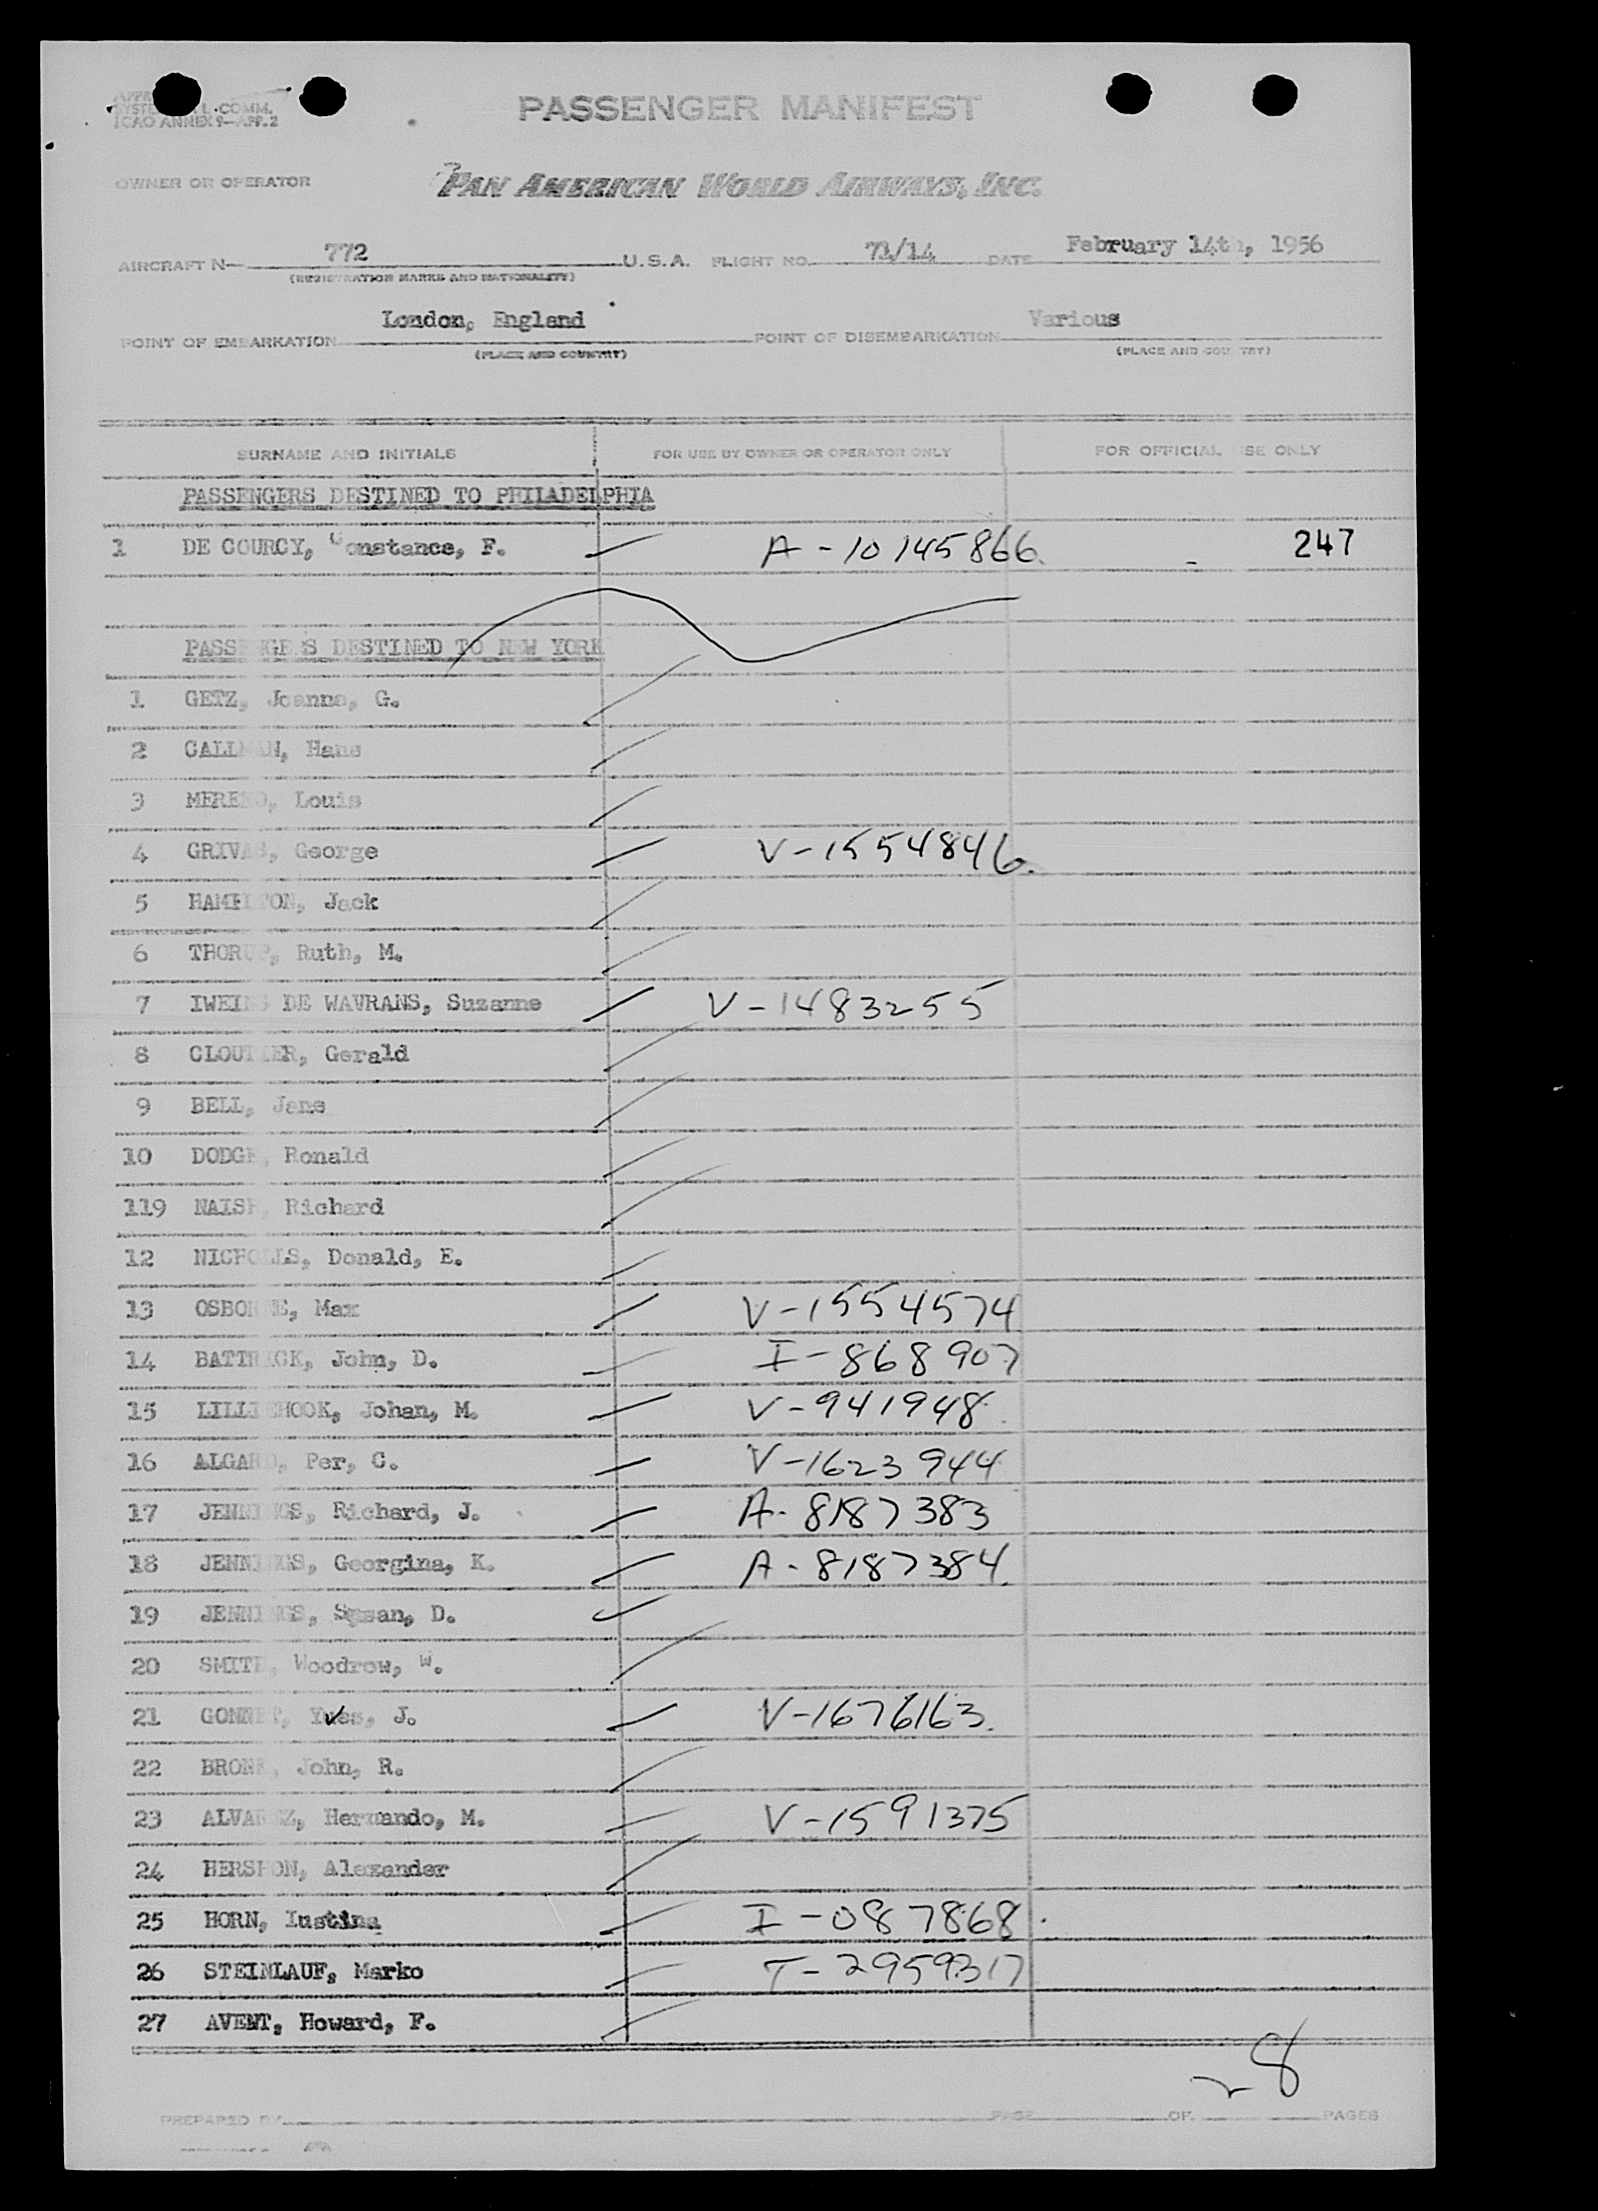 L. COMM.
ICAO ANNEX 9—APP. 2
PASSENGER MANIFEST
OWNER OR OPERATOR
PAN AMERICAN WORLD AIRWAYS, INC.
AIRCRAFT N— 772 U.S.A. FLIGHT NO. 71/14 DATE February 14th, 1956
(REGISTRATION MARKS AND NATIONALITY)
POINT OF EMBARKATION London, England POINT OF DISEMBARKATION Various
(PLACE AND COUNTRY) (PLACE AND COUNTRY)
SURNAME AND INITIALS FOR USE BY OWNER OR OPERATOR ONLY FOR OFFICIAL USE ONLY
PASSENGERS DESTINED TO PHILADELPHIA
1 DE COURCY, Constance, F. A-10145866. 247
PASSENGERS DESTINED TO NEW YORK
1 GETZ, Joanna, G.
2 CALLMAN, Hans
3 Louis
4 GRIVAS, George V-1554846.
5 HAMILTON, Jack
6 THORUP, Ruth, M.
7 IWEINS DE WAVRANS, Suzanne V-1483255
8 CLOUTIER, Gerald
9 BELL, Jane
10 DODGE, Ronald
119 NAISH, Richard
12 NICHOLLS, Donald, E.
13 OSBORNE, Max V-1554574
14 BATTRICK, John, D. I-868907
15 LILLIEHOOK, Johan, M. V-941948
16 ALGARD, Per, C. V-1623944
17 JENNINGS, Richard, J. A-8187383
18 JENNINGS, Georgina, K. A-8187384
19 JENNINGS, Susan, D.
20 SMITH, Woodrow, W.
21 GONNET, Yves, J. V-1676163.
22 John, R.
23 ALVAREZ, Hernando, M. V-1591375
24 HERSHON, Alexander
25 HORN, Iustina I-087868
26 STEINLAUF, Marko T-2959317
27 AVENT, Howard, F.
28
PREPARED BY PAGE OF PAGES